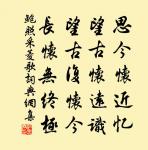 思今懷近忆
望古懷遠識
懷古復懷今
長懷無終極
鮑照采菱歌詞典網集